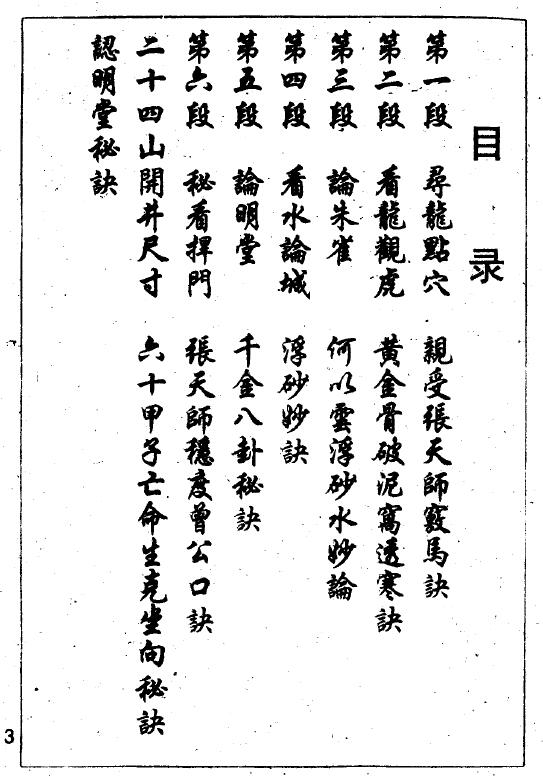 目录
第一段 尋龍點穴 親受張天師竅馬訣
第二段 看龍觀虎 黃金骨破泥窩透寒訣
第三段 論朱雀 何以雲浮砂水妙論
第四段 看水論城 浮砂妙訣
第五段 論明堂 千金八卦秘訣
第六段 秘看捍門 張天師穩度曾公口訣
二十四山開井尺寸 六十甲子亡命生克坐向秘訣
認明堂秘訣
3